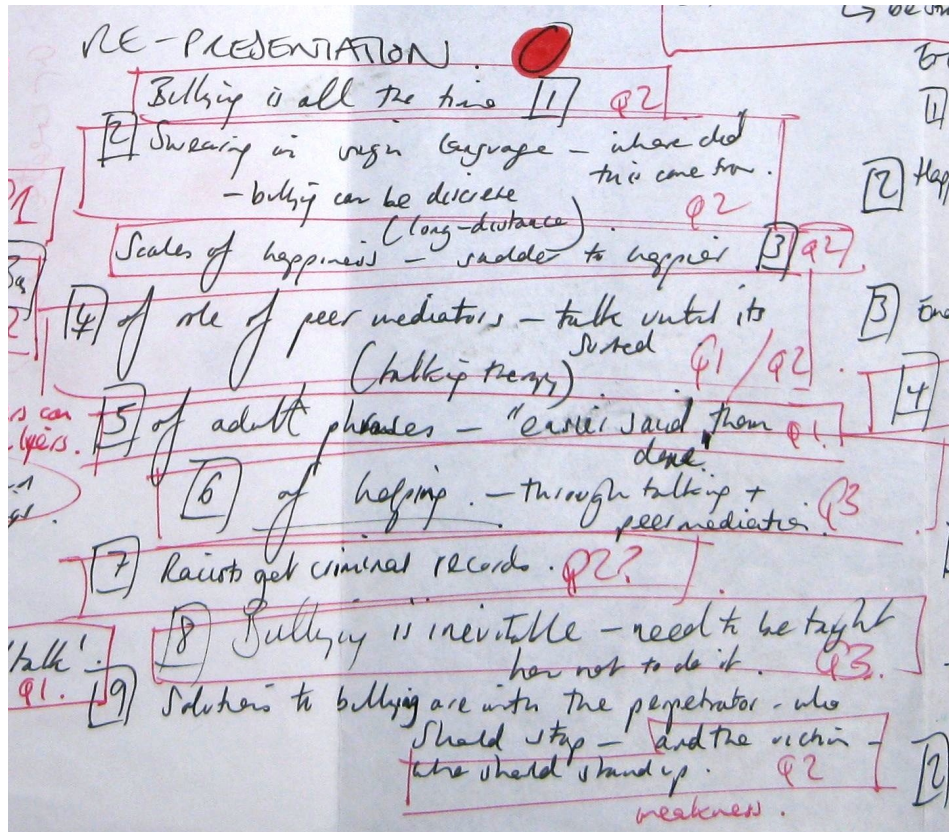 RE-PRESENTATION.
Bullying is all the time [1] Q2
[2] Swearing in virgin language – where did
this come from.
– bullying can be discrete
(long-distance) Q2
Scales of happiness – sadder to happier [3] Q2
[4] of role of peer mediators – talk until its
sorted
(talking therapy) Q1 / Q2
[5] of adult phrases – "easier said them
done." Q1.
[6] of helping. – through talking +
peer mediation Q3
[7] Racists get criminal records. Q2?
[8] Bullying is inevitable – need to be taught
how not to do it. Q3.
[9] Solutions to bullying are with the perpetrator – who
should stop – and the victim –
who should stand up. Q2
weakness.
'talk'.
Q1.
[1]
[2] Hap
[3]
[4]
[2]